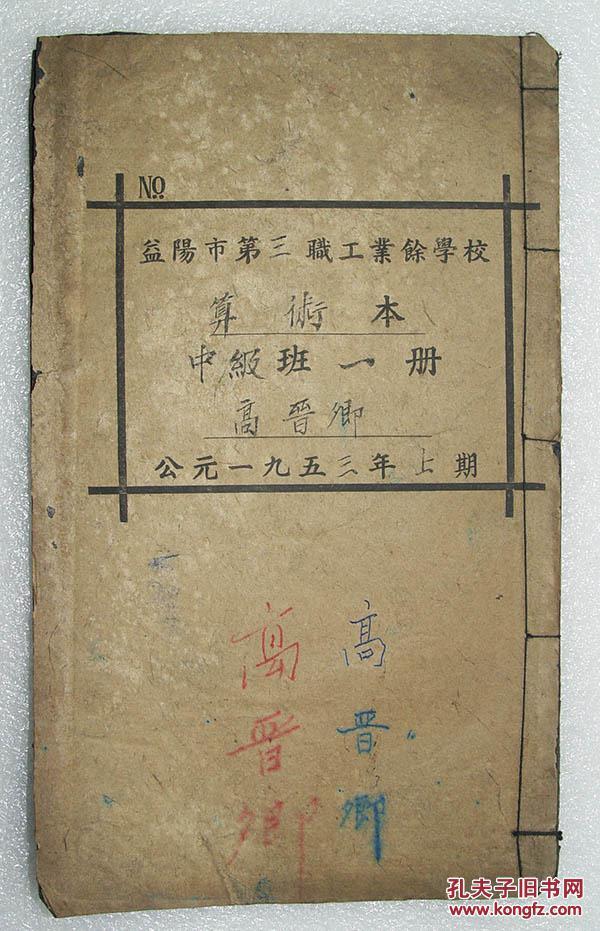 NO
益陽市第三職工業餘學校
算術本
中級班一册
高晉卿
公元一九五三年上期
高晉卿
高晉卿
孔夫子旧书网
www.kongfz.com